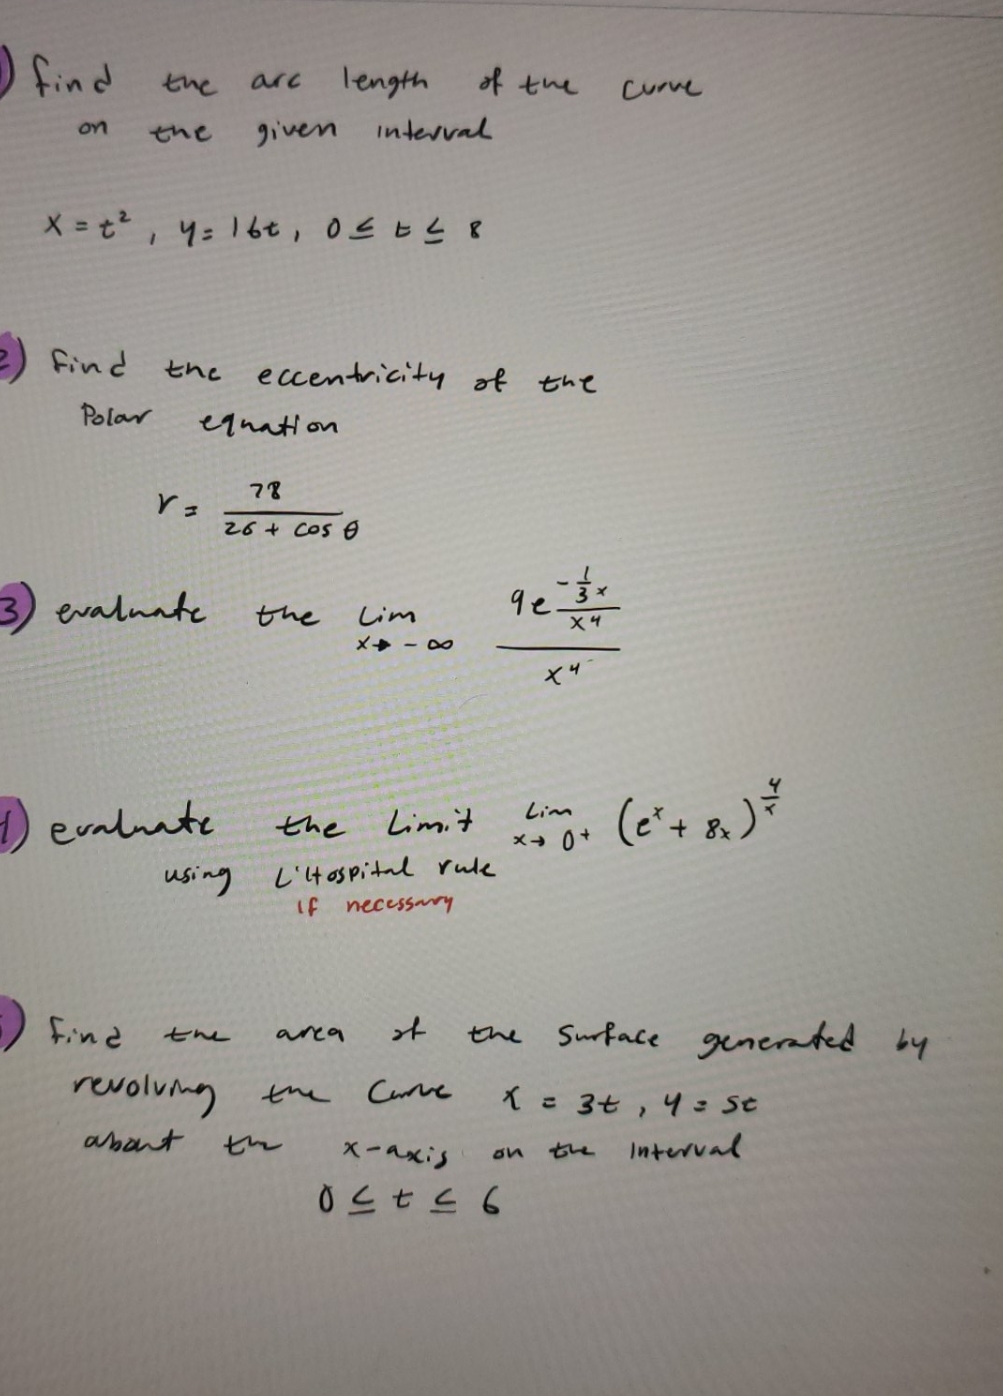 ) find the arc length of the curve
on the given interval
x = t², y = 16t, 0 ≤ t ≤ 8
2) find the eccentricity of the
Polar equation
r = 78 / (26 + cos θ)
3) evaluate the Lim x→ -∞ (9e^(-1/3 x) / x⁴) / x⁴
4) evaluate the Limit Lim x→ 0⁺ (eˣ + 8x)^(4/x)
using L'Hospital rule
if necessary
) find the area of the surface generated by
revolving the Curve x = 3t, y = 5t
about the x-axis on the interval
0 ≤ t ≤ 6